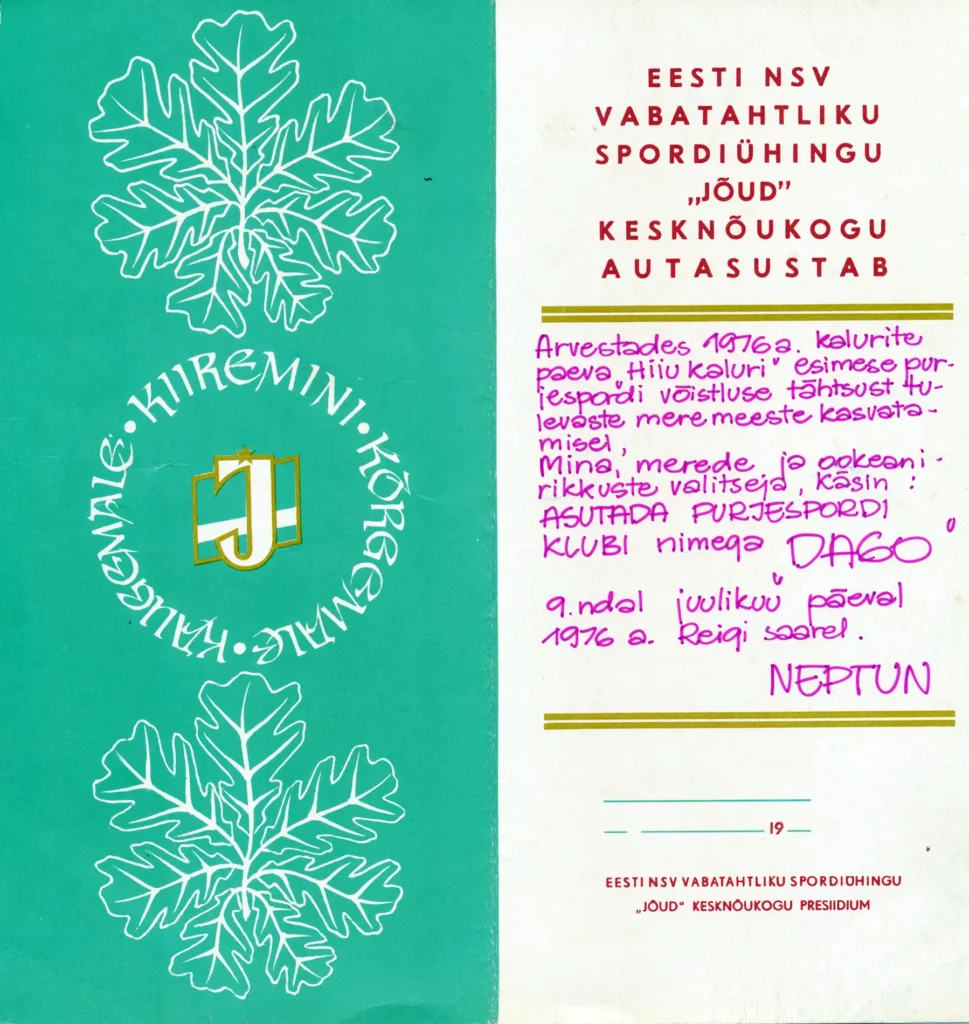 •KIIREMINI•KÕRGEMALE•KAUGEMALE
J
EESTI NSV
VABATAHTLIKU
SPORDIÜHINGU
„JÕUD”
KESKNÕUKOGU
AUTASUSTAB
Arvestades 1976 a. kalurite
päeva „Hiiu kaluri" esimese pur-
jespordi võistluse tähtsust tu-
levaste meremeeste kasvata-
misel,
Mina, merede ja ookeani-
rikkuste valitseja, käsin :
ASUTADA PURJESPORDI
KLUBI nimega "DAGO"
9.ndal juulikuu päeval
1976 a. Reigi saarel.
NEPTUN
19
EESTI NSV VABATAHTLIKU SPORDIÜHINGU
„JÕUD" KESKNÕUKOGU PRESIIDIUM